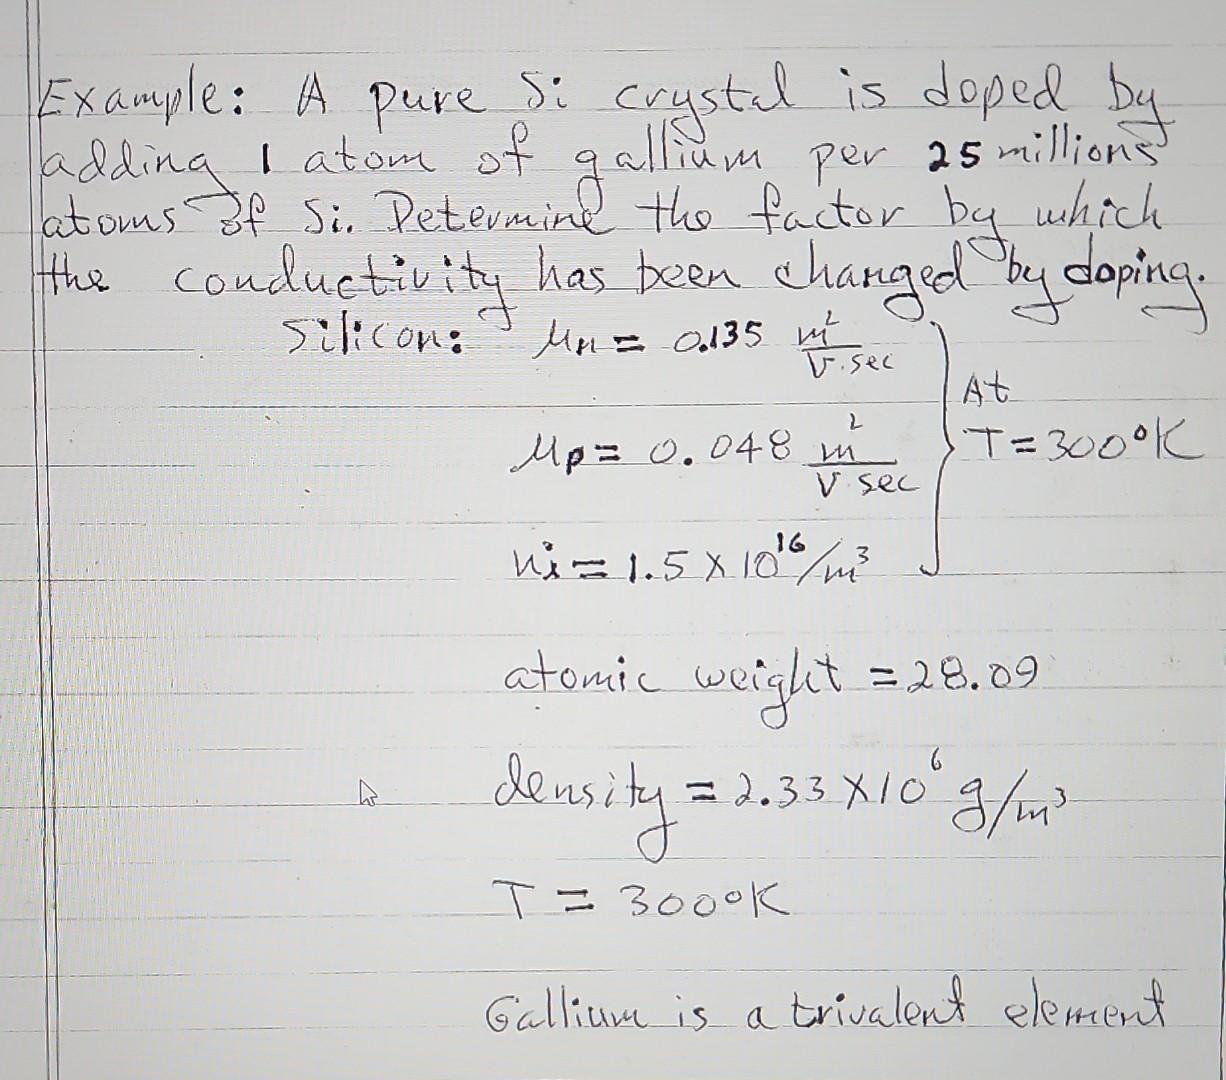 Example: A pure Si crystal is doped by
adding 1 atom of gallium per 25 millions
atoms of Si. Determine the factor by which
the conductivity has been changed by doping.
Silicon: μn = 0.135 m²/V.sec
At
μp = 0.048 m²/V.sec T = 300°K
ni = 1.5 × 10¹⁶/m³
atomic weight = 28.09
density = 2.33 × 10⁶ g/m³
T = 300°K
Gallium is a trivalent element